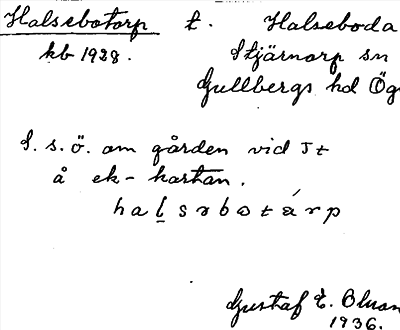 Halsebotorp t. Halseboda
kb 1928. Stjärnorp sn
Gullbergs hd Ög
S. s. ö. om gården vid Jt
å ek-kartan.
halsəbotárp
Gustaf E. Bluan
1936.